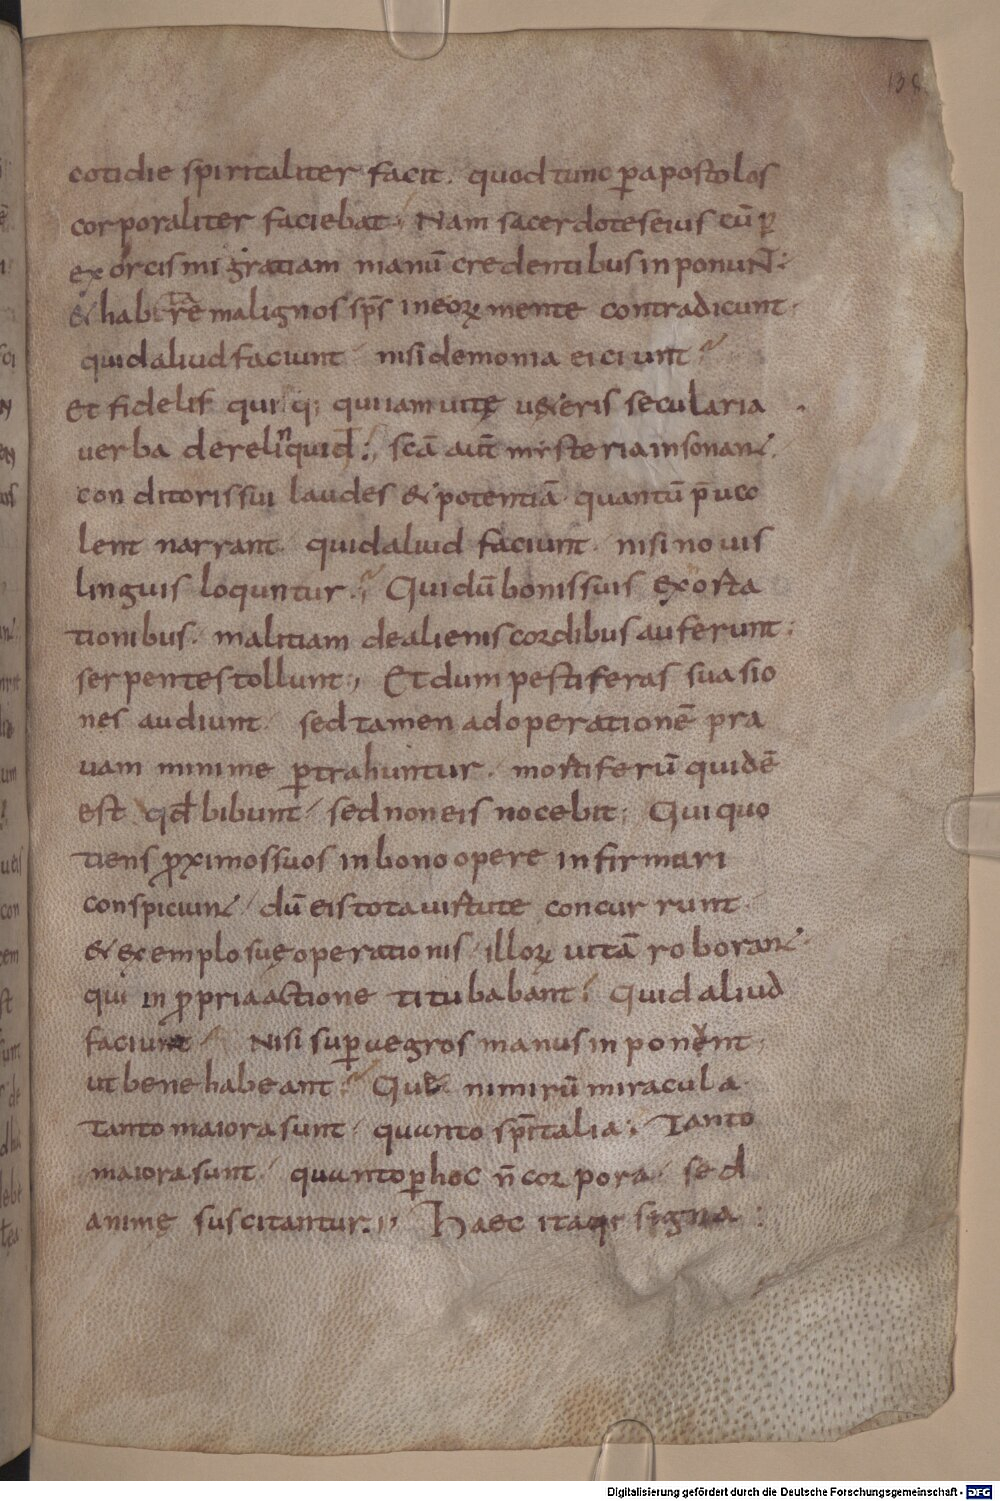 138
cotidie spiritaliter facit. quod tunc ꝑ apostolos
corporaliter faciebat; Nam sacerdotes eius cū ꝑ
exorcismi gratiam manū credentibus inponunt;
& habitare malignos sp̄s in eoꝝ mente contradicunt.
quid aliud faciunt nisi demonia eiciunt?
Et fideles quiq; qui iam uitę ueteris secularia
uerba derelinquid; scā aut̄ mysteria insonant.
conditoris sui laudes & potentiā quantū p̄ua
lent narrant. quid aliud faciunt. nisi nouis
linguis loquntur? Qui dū bonis suis exorta
tionibus. malitiam de alienis cordibus auferunt;
serpentes tollunt; Et dum pestiferas suasio
nes audiunt. sed tamen ad operationē pra
uam minime ꝑtrahuntur. mortiferū quidē
est qd̄ bibunt. sed non eis nocebit; Qui quo
tiens ꝓximos suos in bono opere infirmari
conspiciunt. dū eis tota uirtute concurrunt.
& exemplo suę operationis illoꝝ uitā roborant.
qui in ꝓpria actione titubabant; Quid aliud
faciunt Nisi suꝑ aegros manus inponent
ut bene habeant? Quę nimirū miracula
tanto maiora sunt quanto sp̄italia; Tanto
maiora sunt quanto ꝑ hoc n̄ corpora sed
animę suscitantur;, Haec itaq; signa
Digitalisierung gefördert durch die Deutsche Forschungsgemeinschaft - DFG